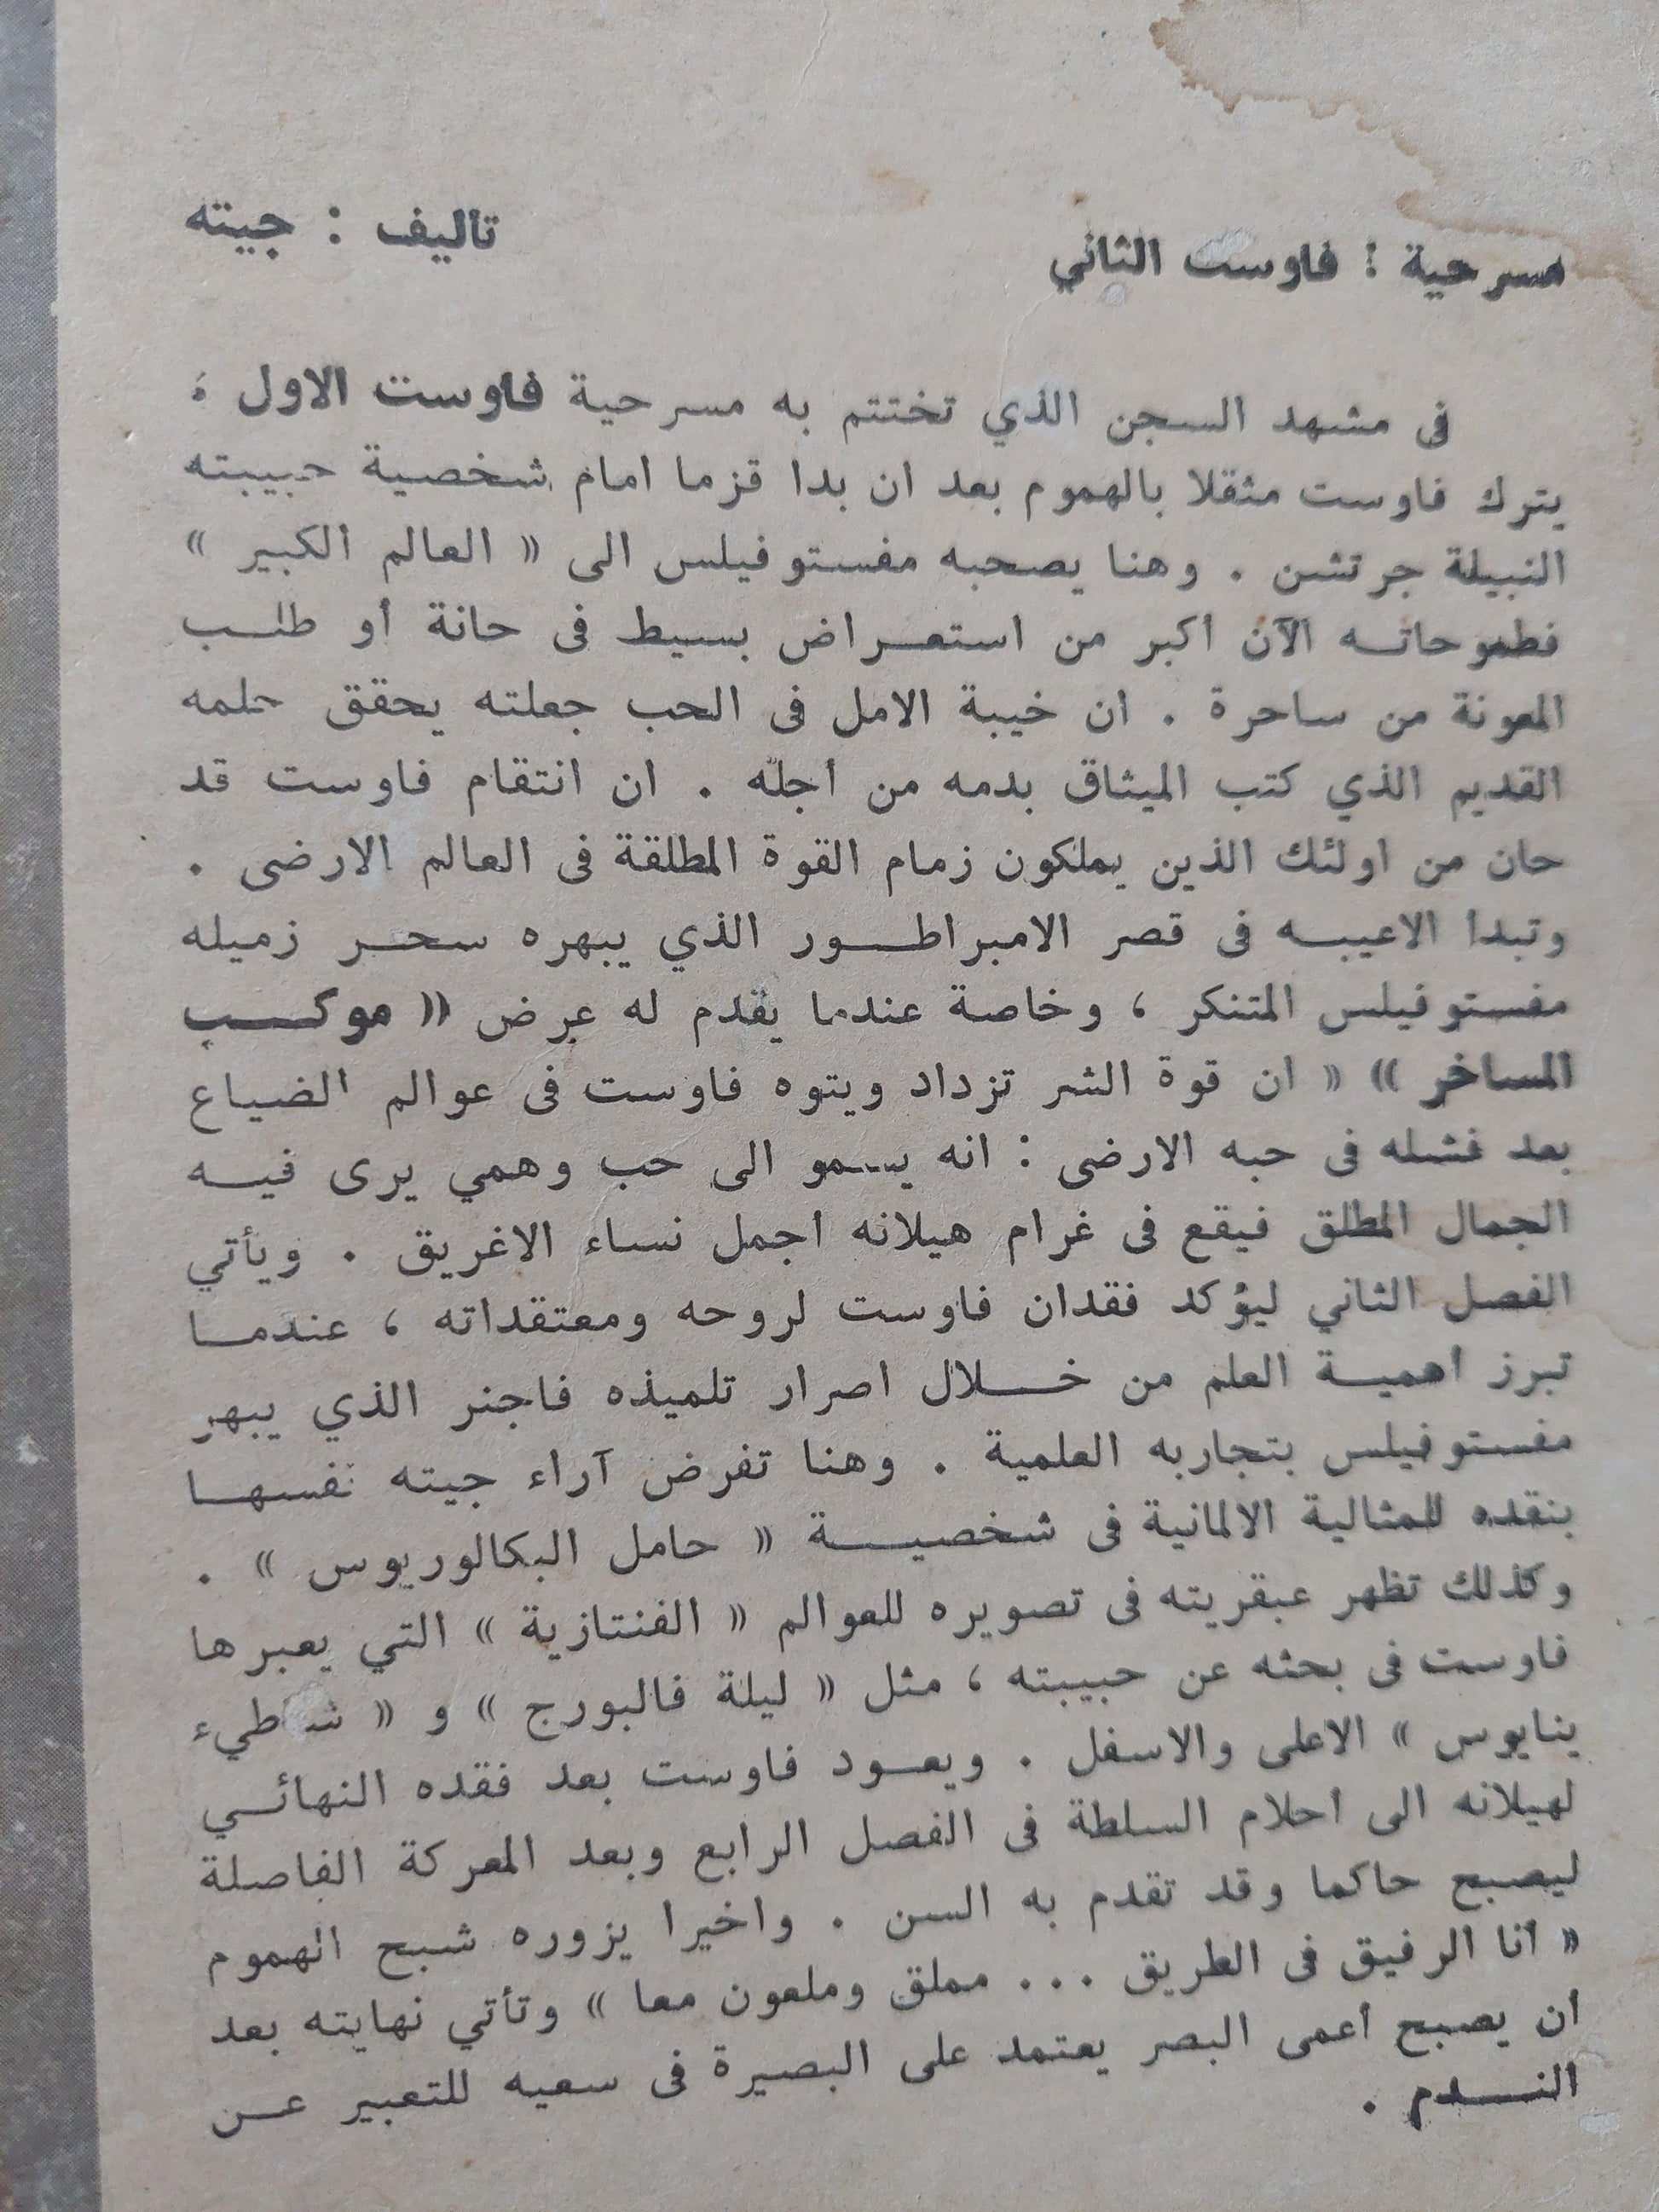 مسرحية : فاوست الثاني
تأليف : جيته
فى مشهد السجن الذي تختتم به مسرحية فاوست الاول ،
يترك فاوست مثقلا بالهموم بعد ان بدا قزما امام شخصية حبيبته
النبيلة جرتشن . وهنا يصحبه مفستوفيلس الى « العالم الكبير »
فطموحاتـه الآن أكبر من استعـراض بسيط فى حانة أو طلـب
المعونة من ساحرة . ان خيبة الامل فى الحب جعلته يحقق حلمه
القديم الذي كتب الميثاق بدمه من أجله . ان انتقام فاوست قد
حان من اولئك الذين يملكون زمام القوة المطلقة فى العالم الارضى .
وتبدأ الاعيبـه فى قصر الامبراطـور الذي يبهره سحـر زميله
مفستوفيلس المتنكر ، وخاصة عندما يقدم له عرض « موكـب
المساخر » « ان قوة الشر تزداد ويتوه فاوست فى عوالم الضياع
بعد فشله فى حبه الارضى : انه يسمو الى حب وهمي يرى فيـه
الجمال المطلق فيقع فى غرام هيلانه أجمل نساء الاغريق . ويأتي
الفصل الثاني ليؤكد فقدان فاوست لروحه ومعتقداته ، عندمـا
تبرز أهميـة العلم من خـلال اصرار تلميذه فاجنر الذي يبهر
مفستوفيلس بتجاربه العلمية . وهنا تفرض آراء جيته نفسهـا
بنقده للمثالية الالمانية فى شخصيـة « حامل البكالوريوس » .
وكذلك تظهر عبقريته فى تصويره للعوالم « الفنتازية » التي يعبرها
فاوست فى بحثه عن حبيبته ، مثل « ليلة فالبورج » و « شاطيء
ينايوس » الاعلى والاسفل . ويعـود فاوست بعد فقده النهائـي
لهيلانه الى أحلام السلطة فى الفصل الرابع وبعد المعركة الفاصلة
ليصبح حاكما وقد تقدم به السن . واخيرا يزوره شبح الهموم
« أنا الرفيق فى الطريق ... مملق وملعون معا » وتأتي نهايته بعد
أن يصبح أعمى البصر يعتمد على البصيرة فى سعيه للتعبير عـن
النـدم .